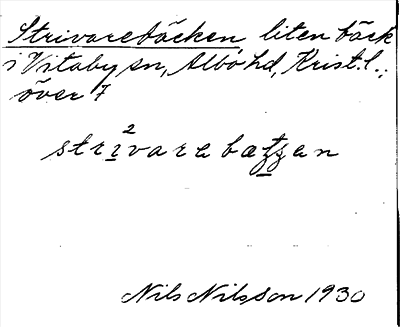 Strivarebäcken liten bäck
i Vitaby sn, Albo hd, Krist. l.;
över 7
strì²vara bætsen
Nils Nilsson 1930